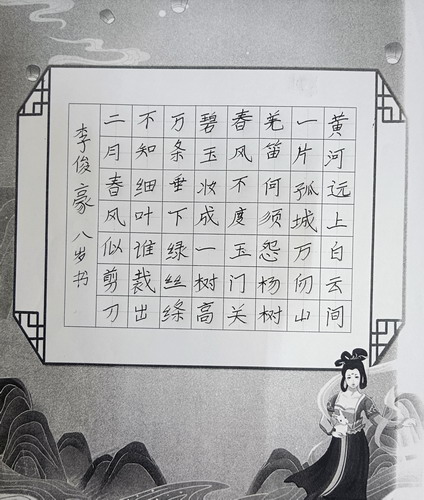 黄河远上白云间
一片孤城万仞山
羌笛何须怨杨树
春风不度玉门关
碧玉妆成一树高
万条垂下绿丝绦
不知细叶谁裁出
二月春风似剪刀
李俊豪 八岁书